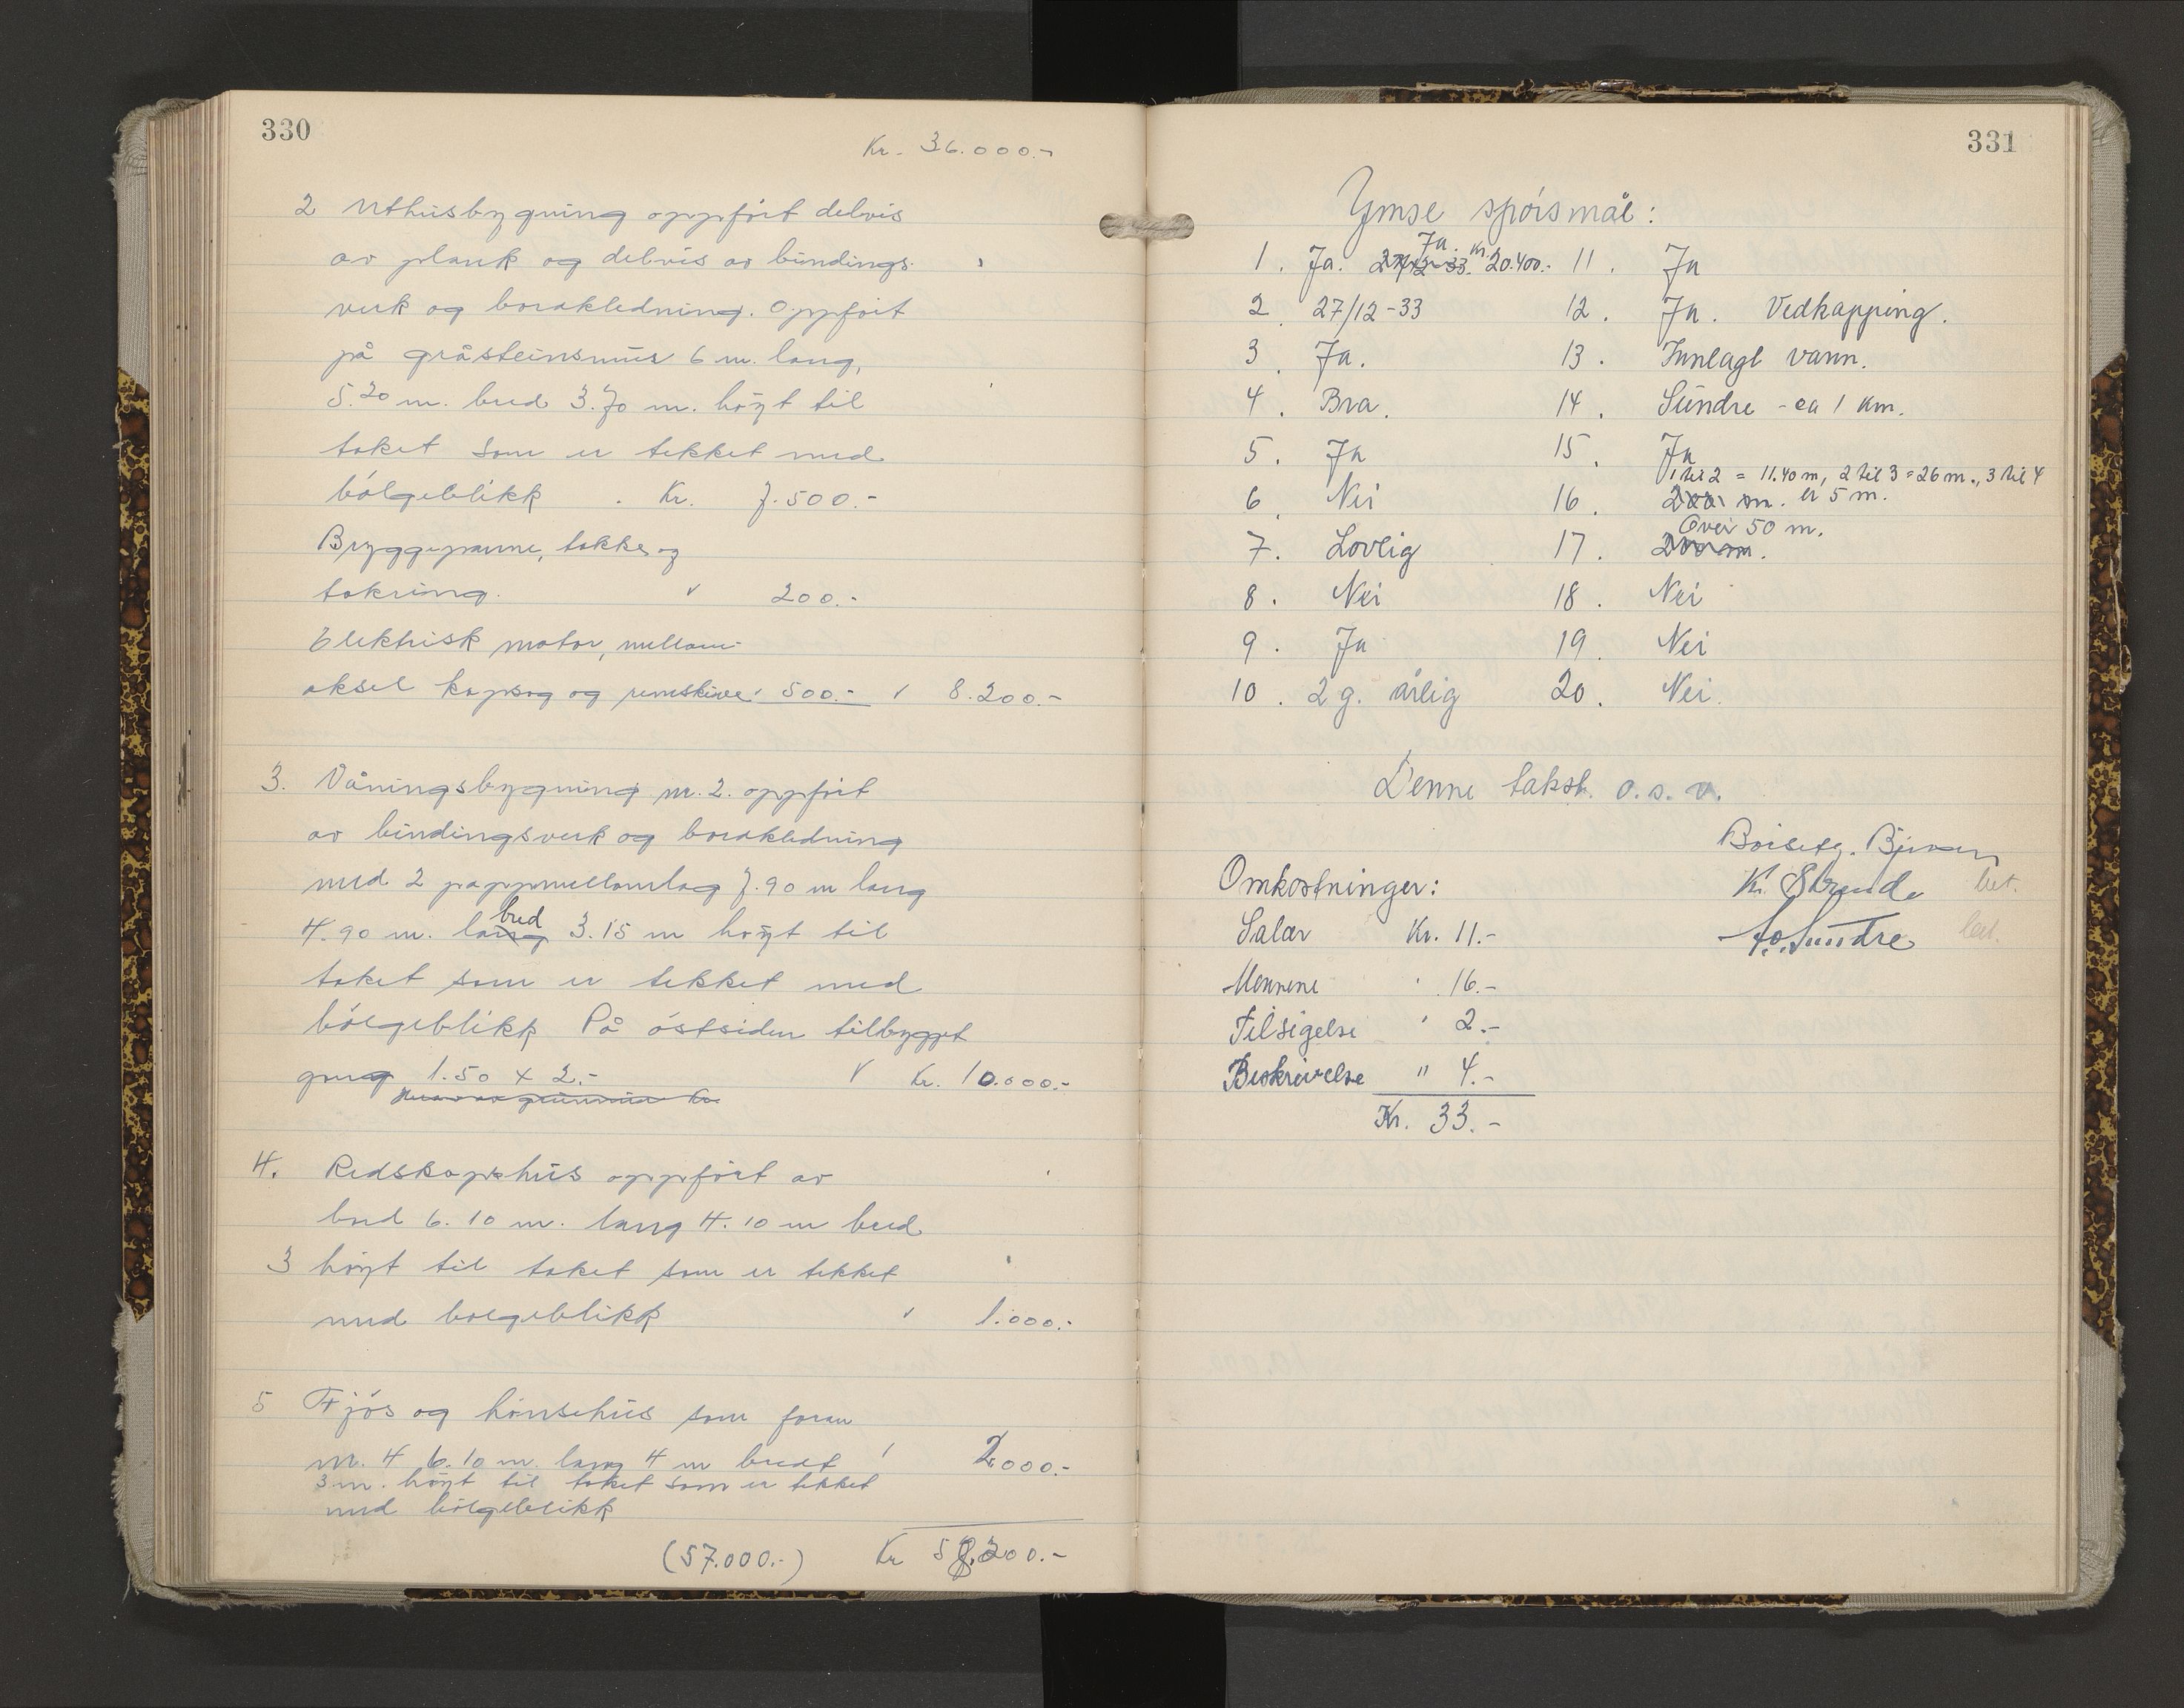 330
Kr. 36.000.-
2 Uthusbygning oppført delvis
av plank og delvis av bindings-
verk og bordkledning. Oppført
på gråsteinsmur 6 m. lang,
5.20 m. bred 3.70 m. høyt til
taket som er tekket med
bølgeblikk . Kr. 7.500.-
Bryggepanne, lokke og
lokring. " 200.-
Elektrisk motor, mellom-
aksel kapsag og remskive " 500.- " 8.200.-
3. Våningsbygning nr. 2. oppført
av bindingsverk og bordkledning
med 2 pappmellomlag 7.90 m lang
4.90 m. lang bred 3.15 m høyt til
taket som er tekket med
bølgeblikk På østsiden tilbygget
gang 1.50 x 2.- " Kr. 10.000.-
Herav av grunnmur Kr
4. Redskapshus oppført av
bord 6.10 m. lang 4.10 m bred
3 høyt til taket som er tekket
med bølgeblikk " 1.000.-
5 Fjøs og hønsehus som foran
nr. 4 6.10 m. lang 4 m bredt " 2.000.-
3 m. høyt til taket som er tekket
med bølgeblikk
(57.000.-) Kr 58.200.-
331
Ymse spørsmål:
1. Ja. 27/12-33. Ja. Kr. 20.400.- 11. Ja
2. 27/12-33 12. Ja. Vedkapping.
3. Ja. 13. Innlagt vann.
4. Bra. 14. Sundre - ca 1 km.
5. Ja 15. Ja
1 til 2 = 11.40 m, 2 til 3 = 26 m., 3 til 4
6. Nei 16. 200 m. er 5 m.
Over 50 m.
7. Lovlig 17. 200 m.
8. Nei 18. Nei
9. Ja 19. Nei
10. 2 g. årlig 20. Nei.
Denne takst. o.s.v.
K. Strande bet.
Omkostninger:
Salær Kr. 11.-
A. Sundre bet.
Mennene " 16.-
Tilsigelse " 2.-
Beskrivelse " 4.-
Kr. 33.-